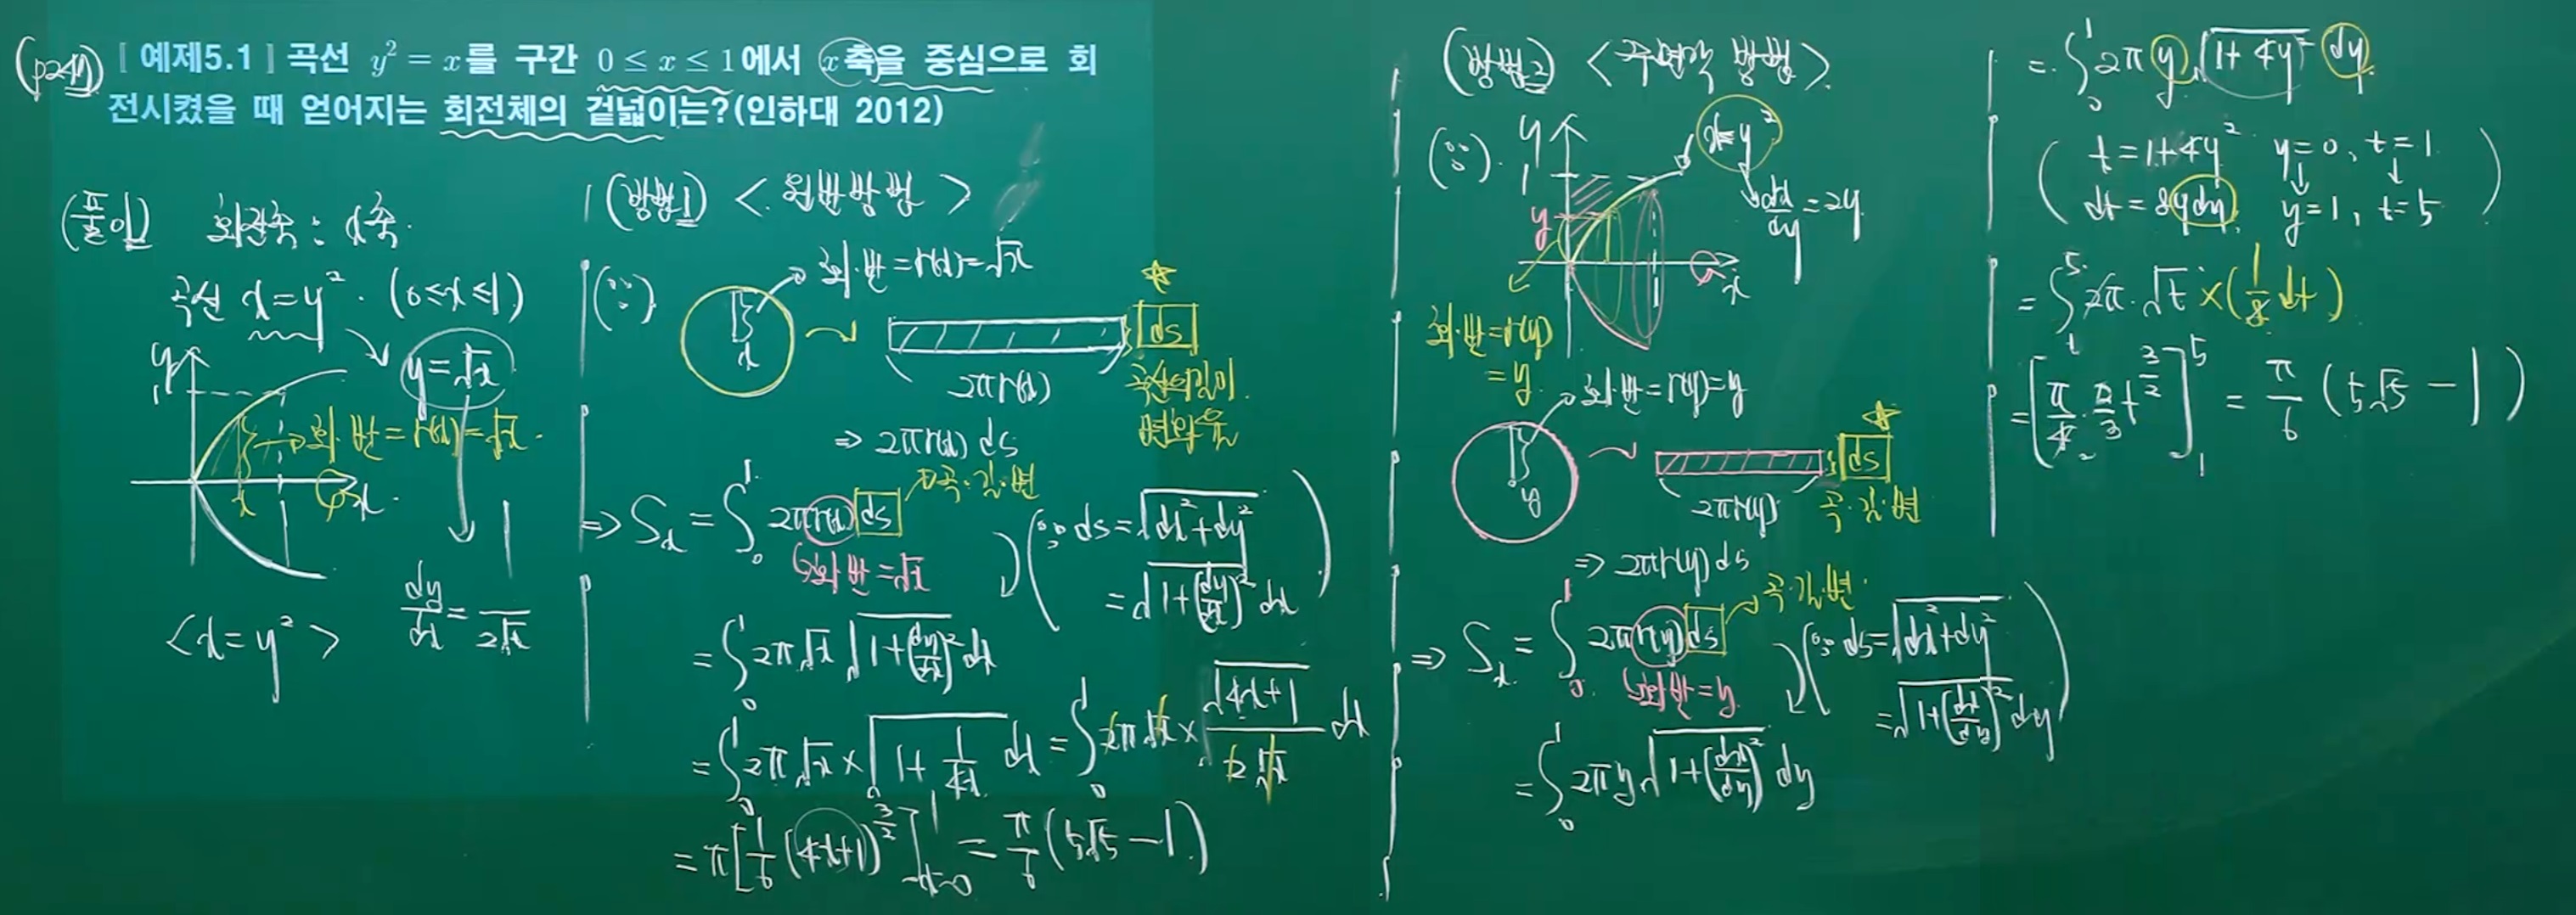 (p241) [ 예제5.1 ] 곡선 y² = x를 구간 0 ≤ x ≤ 1에서 x축을 중심으로 회
전시켰을 때 얻어지는 회전체의 겉넓이는?(인하대 2012)
(풀이) 회전축 : x축.
곡선 x = y². (0≤x≤1)
y = √x
y
1
회·반 = r(x) = √x.
x
x.
dy/dx = 1/(2√x)
<x = y²>
(방법1) < 원반방법 >
(∵).
회·반 = r(x) = √x
x
☆
ds
2πr(x)
곡선의길이
변화율
⇒ 2πr(x) ds
⇒ Sx = ∫₀¹ 2πr(x) ds
곡·길·변
회·반 = √x
(∵ ds = √(dx²+dy²)
= √(1+(dy/dx)²) dx)
= ∫₀¹ 2π√x √(1+(dy/dx)²) dx
= ∫₀¹ 2π√x × √(1 + 1/4x) dx = ∫₀¹ 2π√x × √(4x+1)/(2√x) dx
= π[1/6 (4x+1)^(3/2)]¹ₓ₌₀ = π/6 (5√5 − 1)
(방법2) < 주면각 방법 >.
(∵).
y
1
x = y²
dx/dy = 2y
y
x
회·반 = r(y)
= y.
회·반 = r(y) = y
y
☆
ds
2πr(y)
곡·길·변
⇒ 2πr(y) ds
⇒ Sx. = ∫₀¹ 2πr(y) ds
곡·길·변·
회·반 = y.
(∵ ds = √(dx²+dy²)
= √(1+(dx/dy)²) dy)
= ∫₀¹ 2πy √(1+(dx/dy)²) dy
= ∫₀¹ 2π y √(1+4y²) dy
( t = 1+4y² y=0, t=1
dt = 8ydy, y=1, t=5 )
= ∫₁⁵ 2π·√t × (1/8 dt)
= [π/4 · 2/3 t^(3/2)]₁⁵ = π/6 (5√5 − 1)